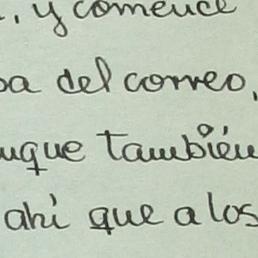 , y comencé
pa del correo,
unque también
ahí que a los